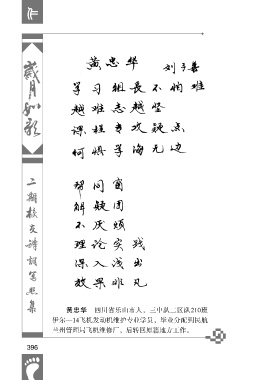 作
岁月如歌
二期校友诗词笔照集
黄忠华 刘子善
学习组长不怕难
越难志越坚
课程专攻疑点
何惧学海无边
帮同窗
解疑团
不厌烦
理论实践
深入浅出
效果非凡
黄忠华 四川省乐山市人，三中队二区队210班
伊尔—14飞机发动机维护专业学员，毕业分配到民航
兰州管理局飞机维修厂，后转回原籍地方工作。
396